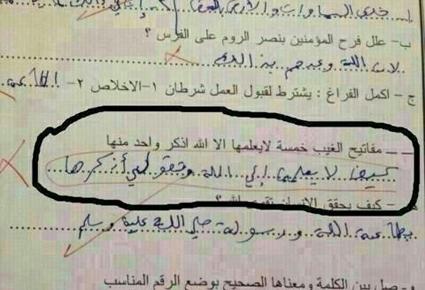 ب- علل فرح المؤمنين بنصر الروم على الفرس ؟
لان الله وعدهم به الله
ج - اكمل الفراغ : يشترط لقبول العمل شرطان ١-الاخلاص ٢-
مفاتيح الغيب خمسة لايعلمها الا الله اذكر واحد منها
كيف لا يعلمها إلى الله وتبغوني أذكرها
- كيف يحقق الانسان تقوى الله ؟
بطاعة الله ورسوله صلى الله عليه وسلم
و- صل بين الكلمة ومعناها الصحيح بوضع الرقم المناسب